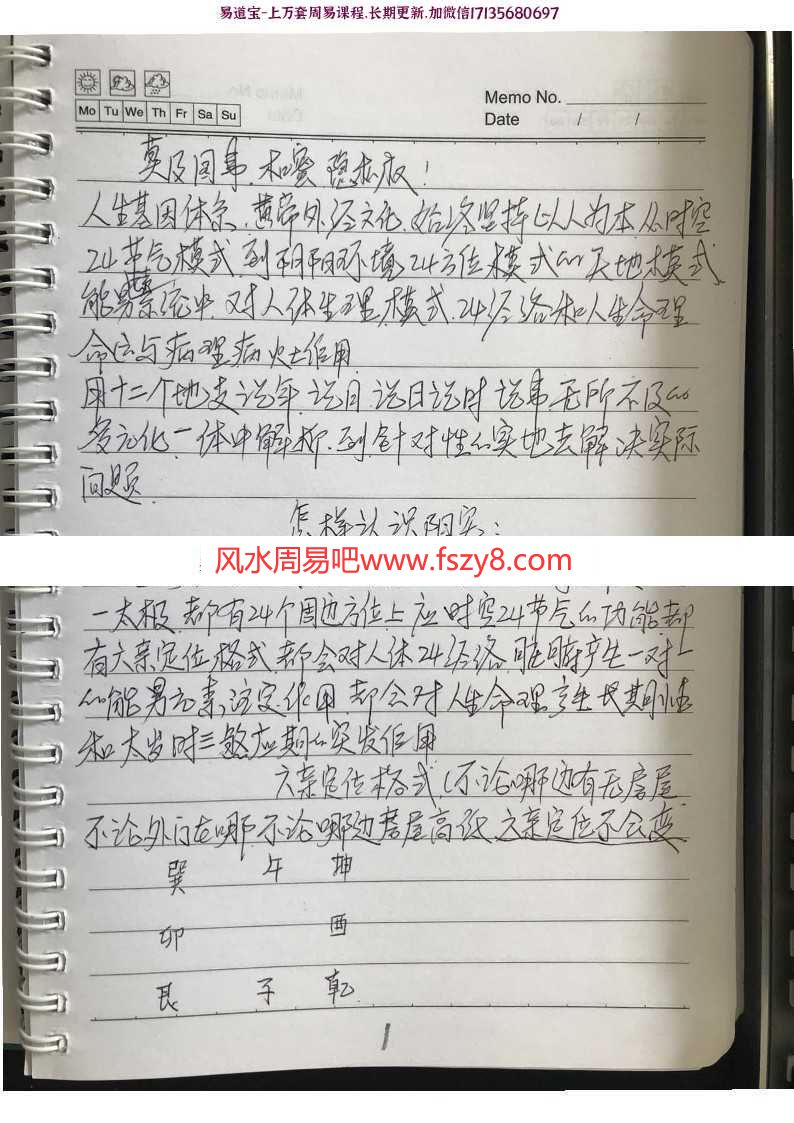 易道宝-上万套周易课程.长期更新.加微信17135680697
Memo No.
Mo Tu We Th Fr Sa Su
Date / /
人生基因体系.黄帝外经文化.始终坚持以人为本.从时空
24节气模式到阴阳环境24方位模式的天地模式
能男 系统中.对人体生理模式.24经络和人生命理
命运与病理病灶作用
用十二个地支说年.说月说日说时说事无所不及的
多元化一体中解析.到针对性的实地去解决实际
问题.
怎样认识阴宅:
风水周易吧www.fszy8.com
一太极都有24个周边方位上应时空24节气的功能都
有六亲定位格式都会对人体24经络 产生一对一
的能男元素 定作用.都会对人生命理产生长期
和太岁时三煞应期的突发作用
六亲定位格式(不论哪边有无房屋
不论外门在哪不论哪边房屋高低六亲定位不会变
巽 午 坤
卯 酉
艮 子 乾
1